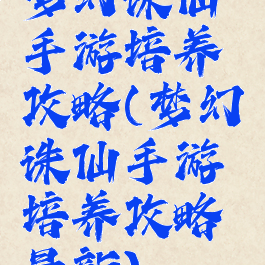 梦幻诛仙
手游培养
攻略(梦幻
诛仙手游
培养攻略
最新)